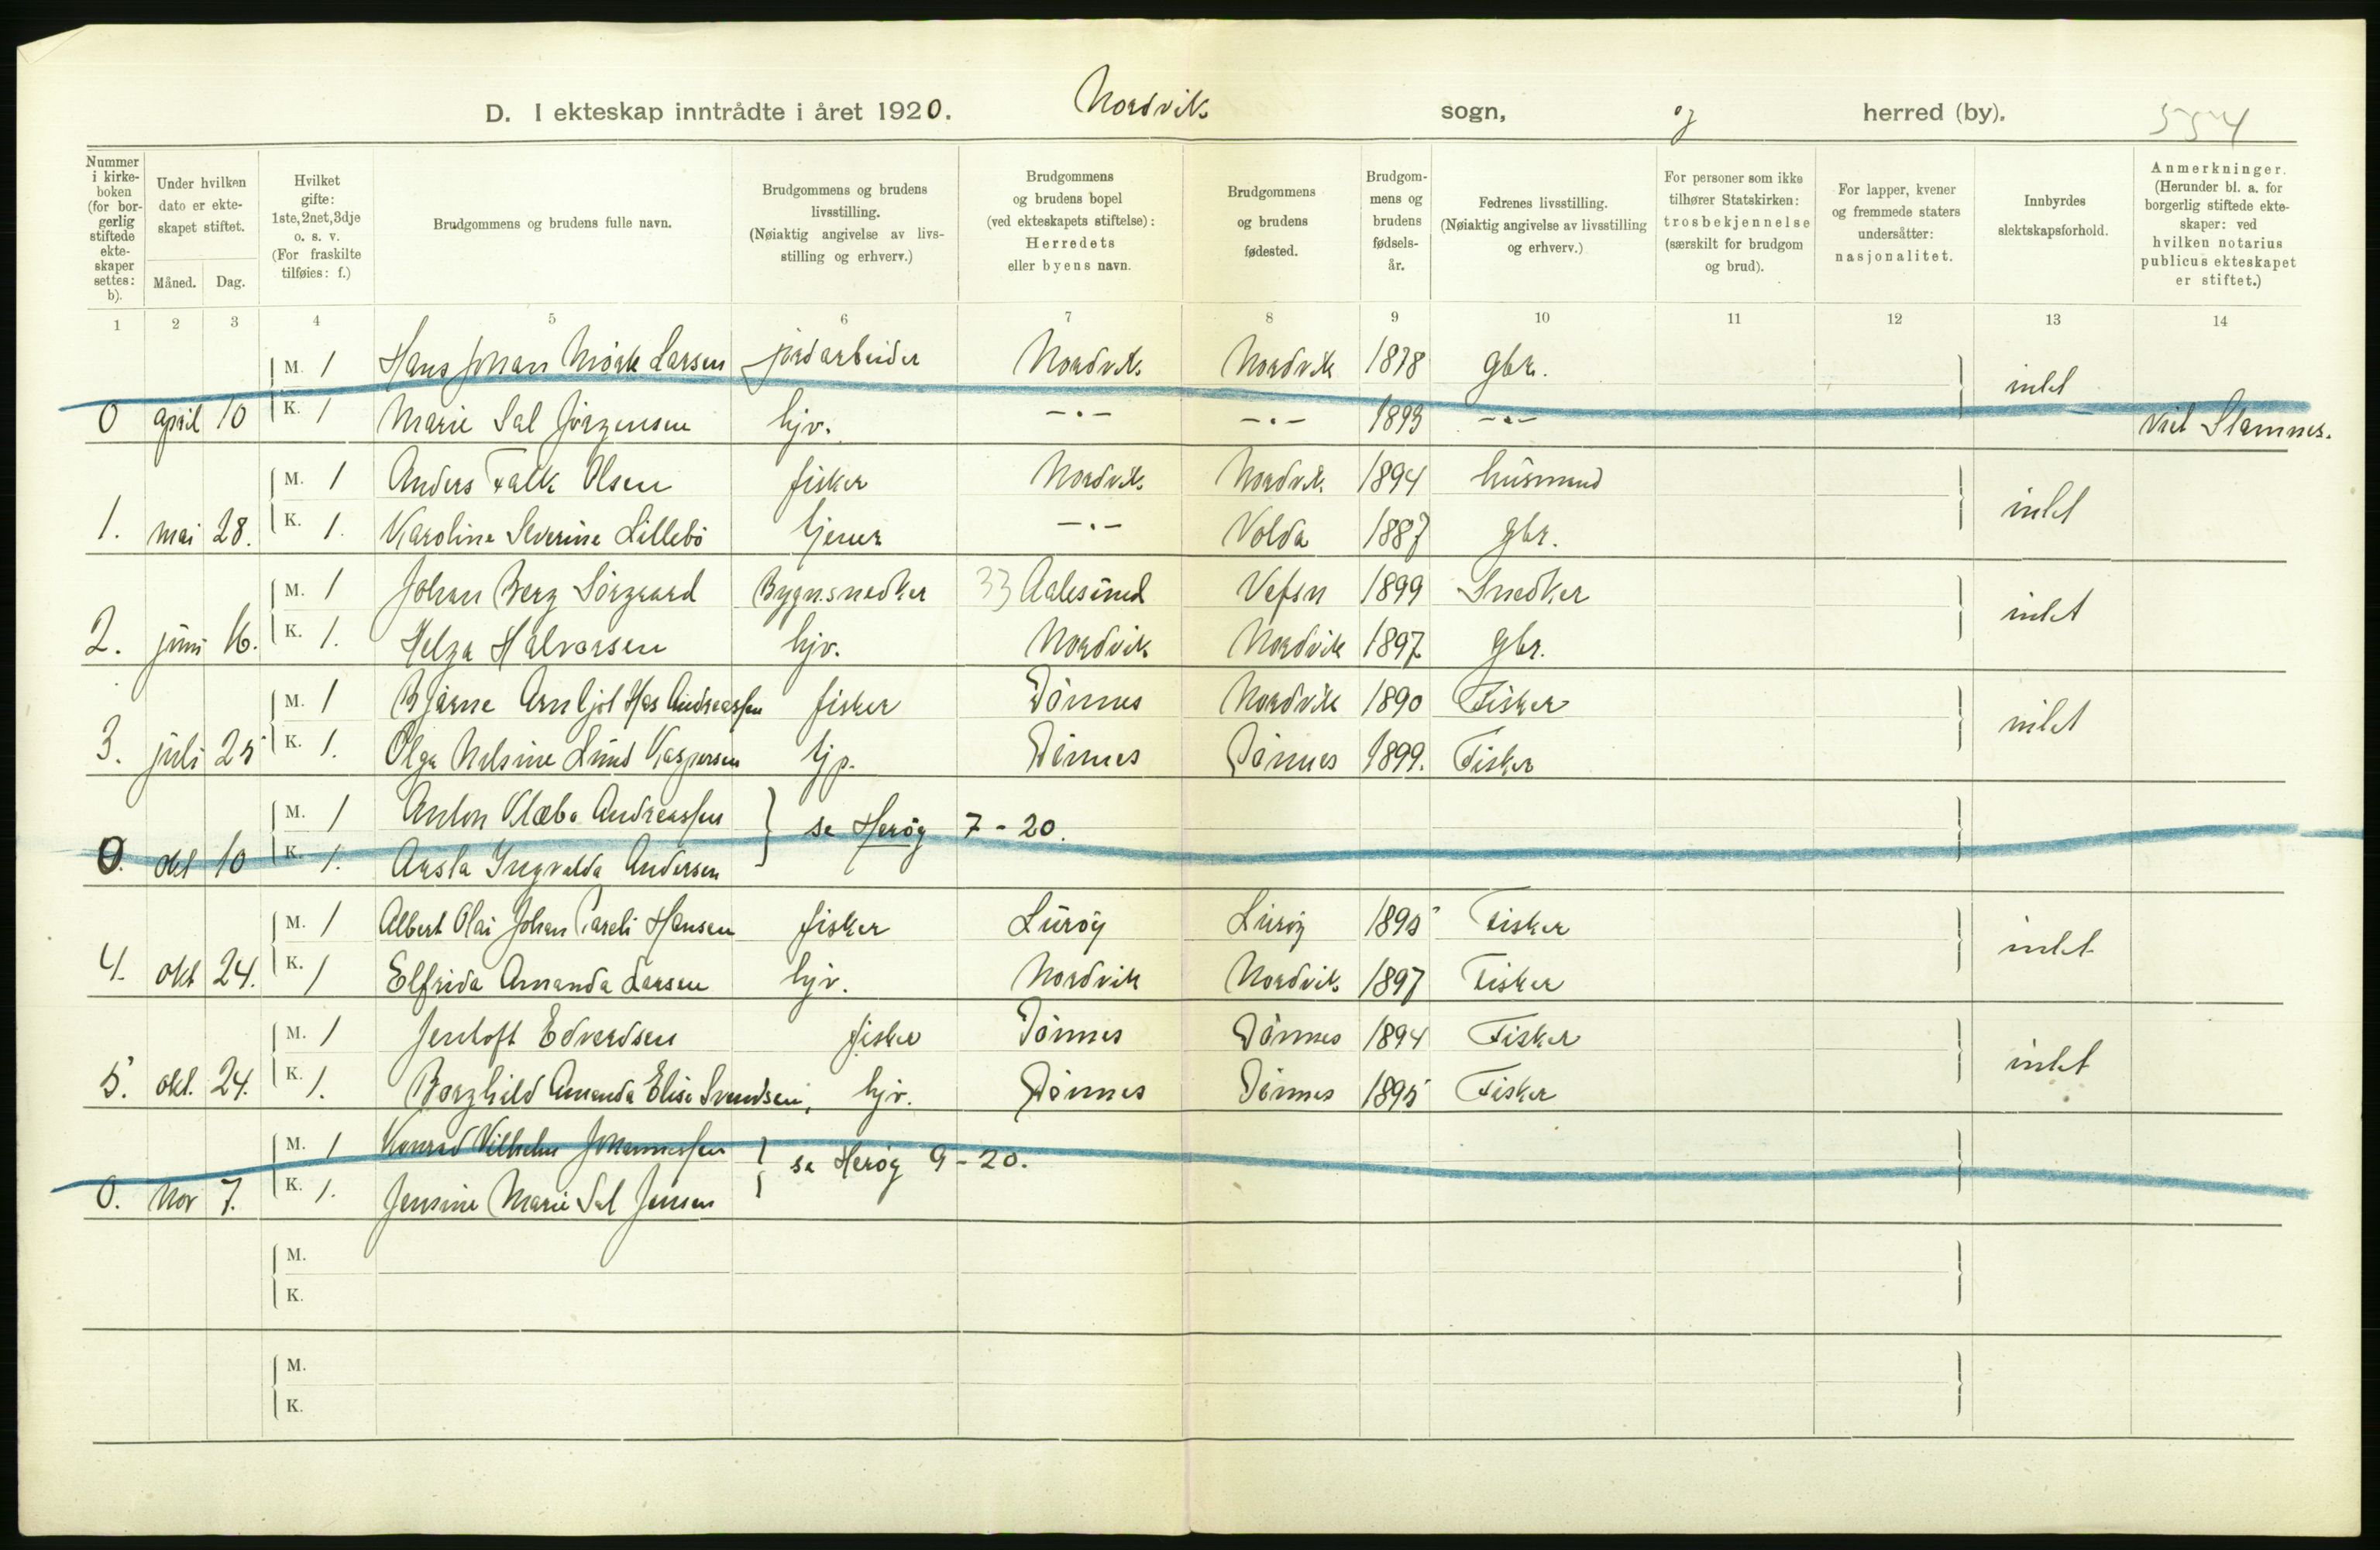 D. I ekteskap inntrådte i året 1920. Nordvik sogn, og herred (by). 554
Nummer i kirke-boken (for bor-gerlig stiftede ekte-skaper settes: b).
Under hvilken dato er ekte-skapet stiftet. Måned. Dag.
Hvilket gifte: 1ste, 2net, 3dje o. s. v. (For fraskilte tilføies: f.)
Brudgommens og brudens fulle navn.
Brudgommens og brudens livsstilling. (Nøiaktig angivelse av livs-stilling og erhverv.)
Brudgommens og brudens bopel (ved ekteskapets stiftelse): Herredets eller byens navn.
Brudgommens og brudens fødested.
Brudgom-mens og brudens fødsels-år.
Fedrenes livsstilling. (Nøiaktig angivelse av livsstilling og erhverv.)
For personer som ikke tilhører Statskirken: trosbekjennelse (særskilt for brudgom og brud).
For lapper, kvener og fremmede staters undersåtter: nasjonalitet.
Innbyrdes slektskapsforhold.
Anmerkninger. (Herunder bl. a. for borgerlig stiftede ekte-skaper: ved hvilken notarius publicus ekteskapet er stiftet.)
1 2 3 4 5 6 7 8 9 10 11 12 13 14
M. 1 Hans Johan Mörk Larsen jordarbeider Nordvik Nordvik 1878 gbr. intet
0 april 10 K. 1 Marie Sal Jörgensen hjv. -"- -"- 1893 -"- Stamnes.
M. 1 Anders Falk Olsen fisker Nordvik Nordvik 1894 husmand intet
1. mai 28. K. 1. Karoline Severine Lillebö tjener -"- Volda 1887 gbr.
M. 1 Johan Berg Sörgaard Bygn.snedker 33 Aalesund Vefsn 1899 Snedker intet
2. juni 16. K. 1. Helga Halvorsen hjv. Nordvik Nordvik 1897 gbr.
M. 1 Bjarne Arnljot Has Andreassen fisker Dönnes Nordvik 1890 Fisker intet
3. juli 25 K. 1. Olga Nilsine Lund Kaspersen tjp. Dönnes Dönnes 1899. Fisker
M. 1 Anton Klæbo Andreassen se Heröy 7 - 20.
0. okt 10 K. 1. Aasta Ingvalda Andersen
M. 1 Albert Olai Johan Pareli Hansen fisker Luröy Luröy 1895 Fisker intet
4. okt 24. K. 1 Elfrida Amanda Larsen hjv. Nordvik Nordvik 1897 Fisker
M. 1 Jentoft Edvardsen fisker Dönnes Dönnes 1894 Fisker intet
5. okt. 24. K. 1. Borghild Amanda Elise Svendsen, hjv. Dönnes Dönnes 1895 Fisker
M. 1 Konrad Vilhelm Johannessen se Heröy 9 - 20.
0. Nov 7. K. 1. Jensine Marie Sal Jensen
M.
K.
M.
K.